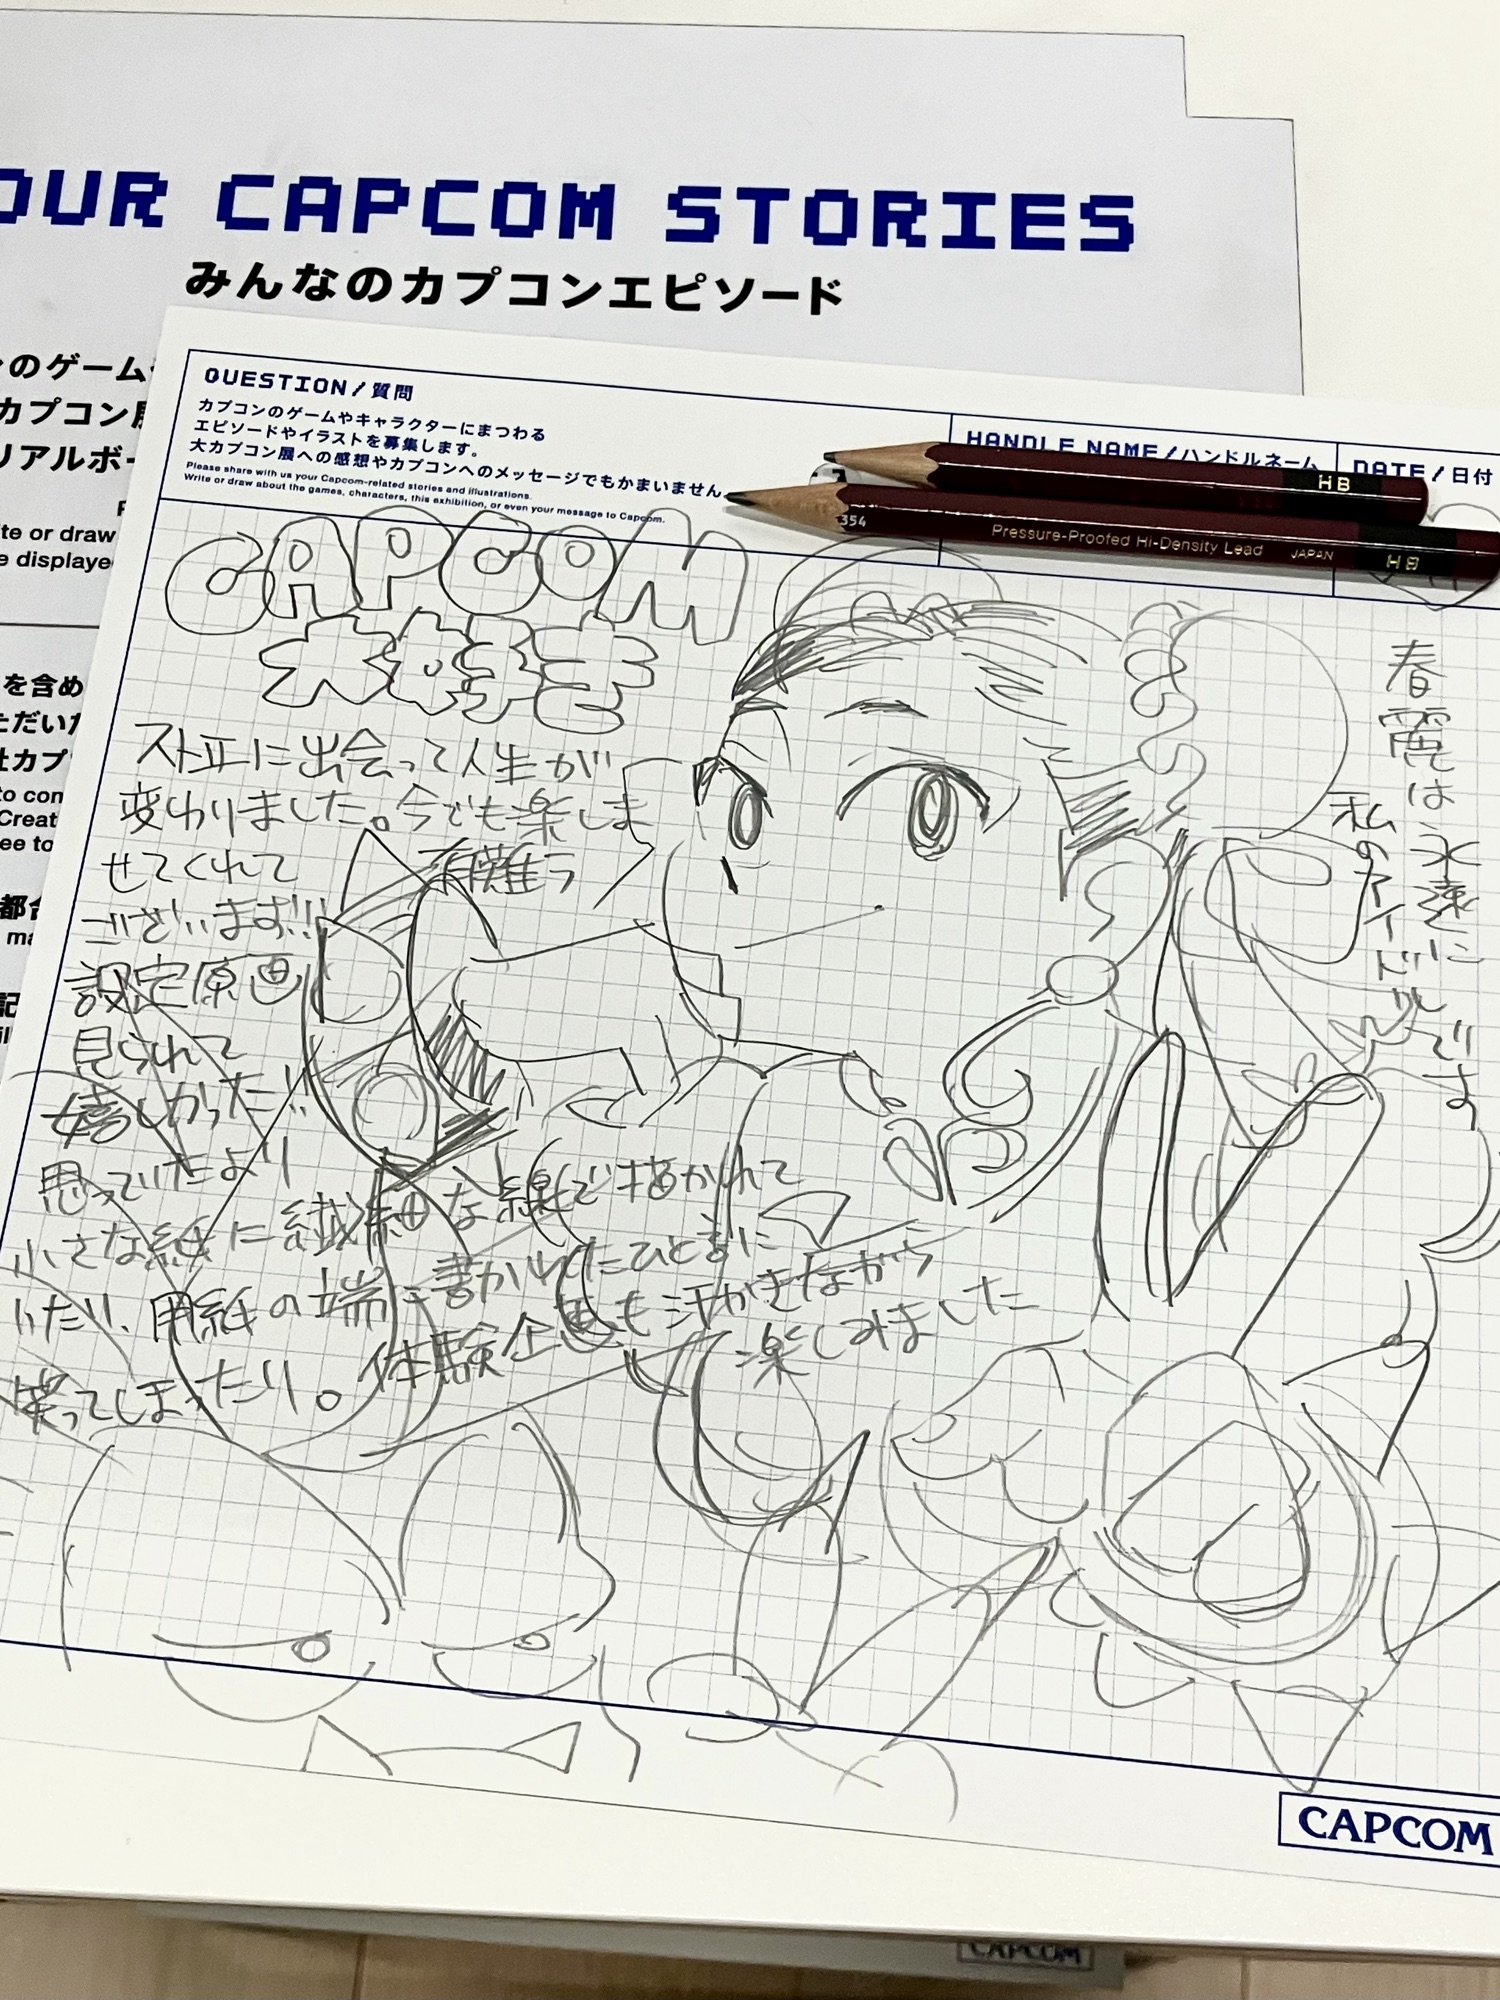 OUR CAPCOM STORIES
みんなのカプコンエピソード
のゲーム
カプコン
リアルボー
ite or draw
e displaye
を含め
ただいた
社カプ
to con
Creat
ee to
都合
ma
記
QUESTION/質問
カプコンのゲームやキャラクターにまつわる
エピソードやイラストを募集します。
大カプコン展への感想やカプコンへのメッセージでもかまいません。
Please share with us your Capcom-related stories and illustrations.
Write or draw about the games, characters, this exhibition, or even your message to Capcom.
HANDLE NAME/ハンドルネーム
DATE/日付
HB
354 Pressure-Proofed Hi-Density Lead JAPAN HB
CAPCOM
大好き
ストIIに出会って人生が
変わりました。今でも楽しま
せてくれて
有難う
ございます!!!
設定原画
見られて
嬉しかった!!
思っていたより
小さな紙に繊細な線で描かれて
いたり、用紙の端に書かれたひと言に
笑ってしまったり。
体験企画も汗かきながら
楽しみました
春麗は永遠に
私のアイドルです
CAPCOM
CAPCOM